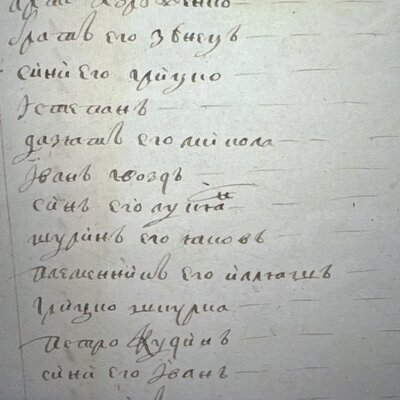 братъ его звнецъ
сынъ его грицко
Істепанъ
дазятъ его микола
Іванъ гвоздь
сынъ его лукян
шуринъ его яковъ
племенникъ его илляшъ
грицко шкурка
петро кудинъ
сынъ его Іванъ